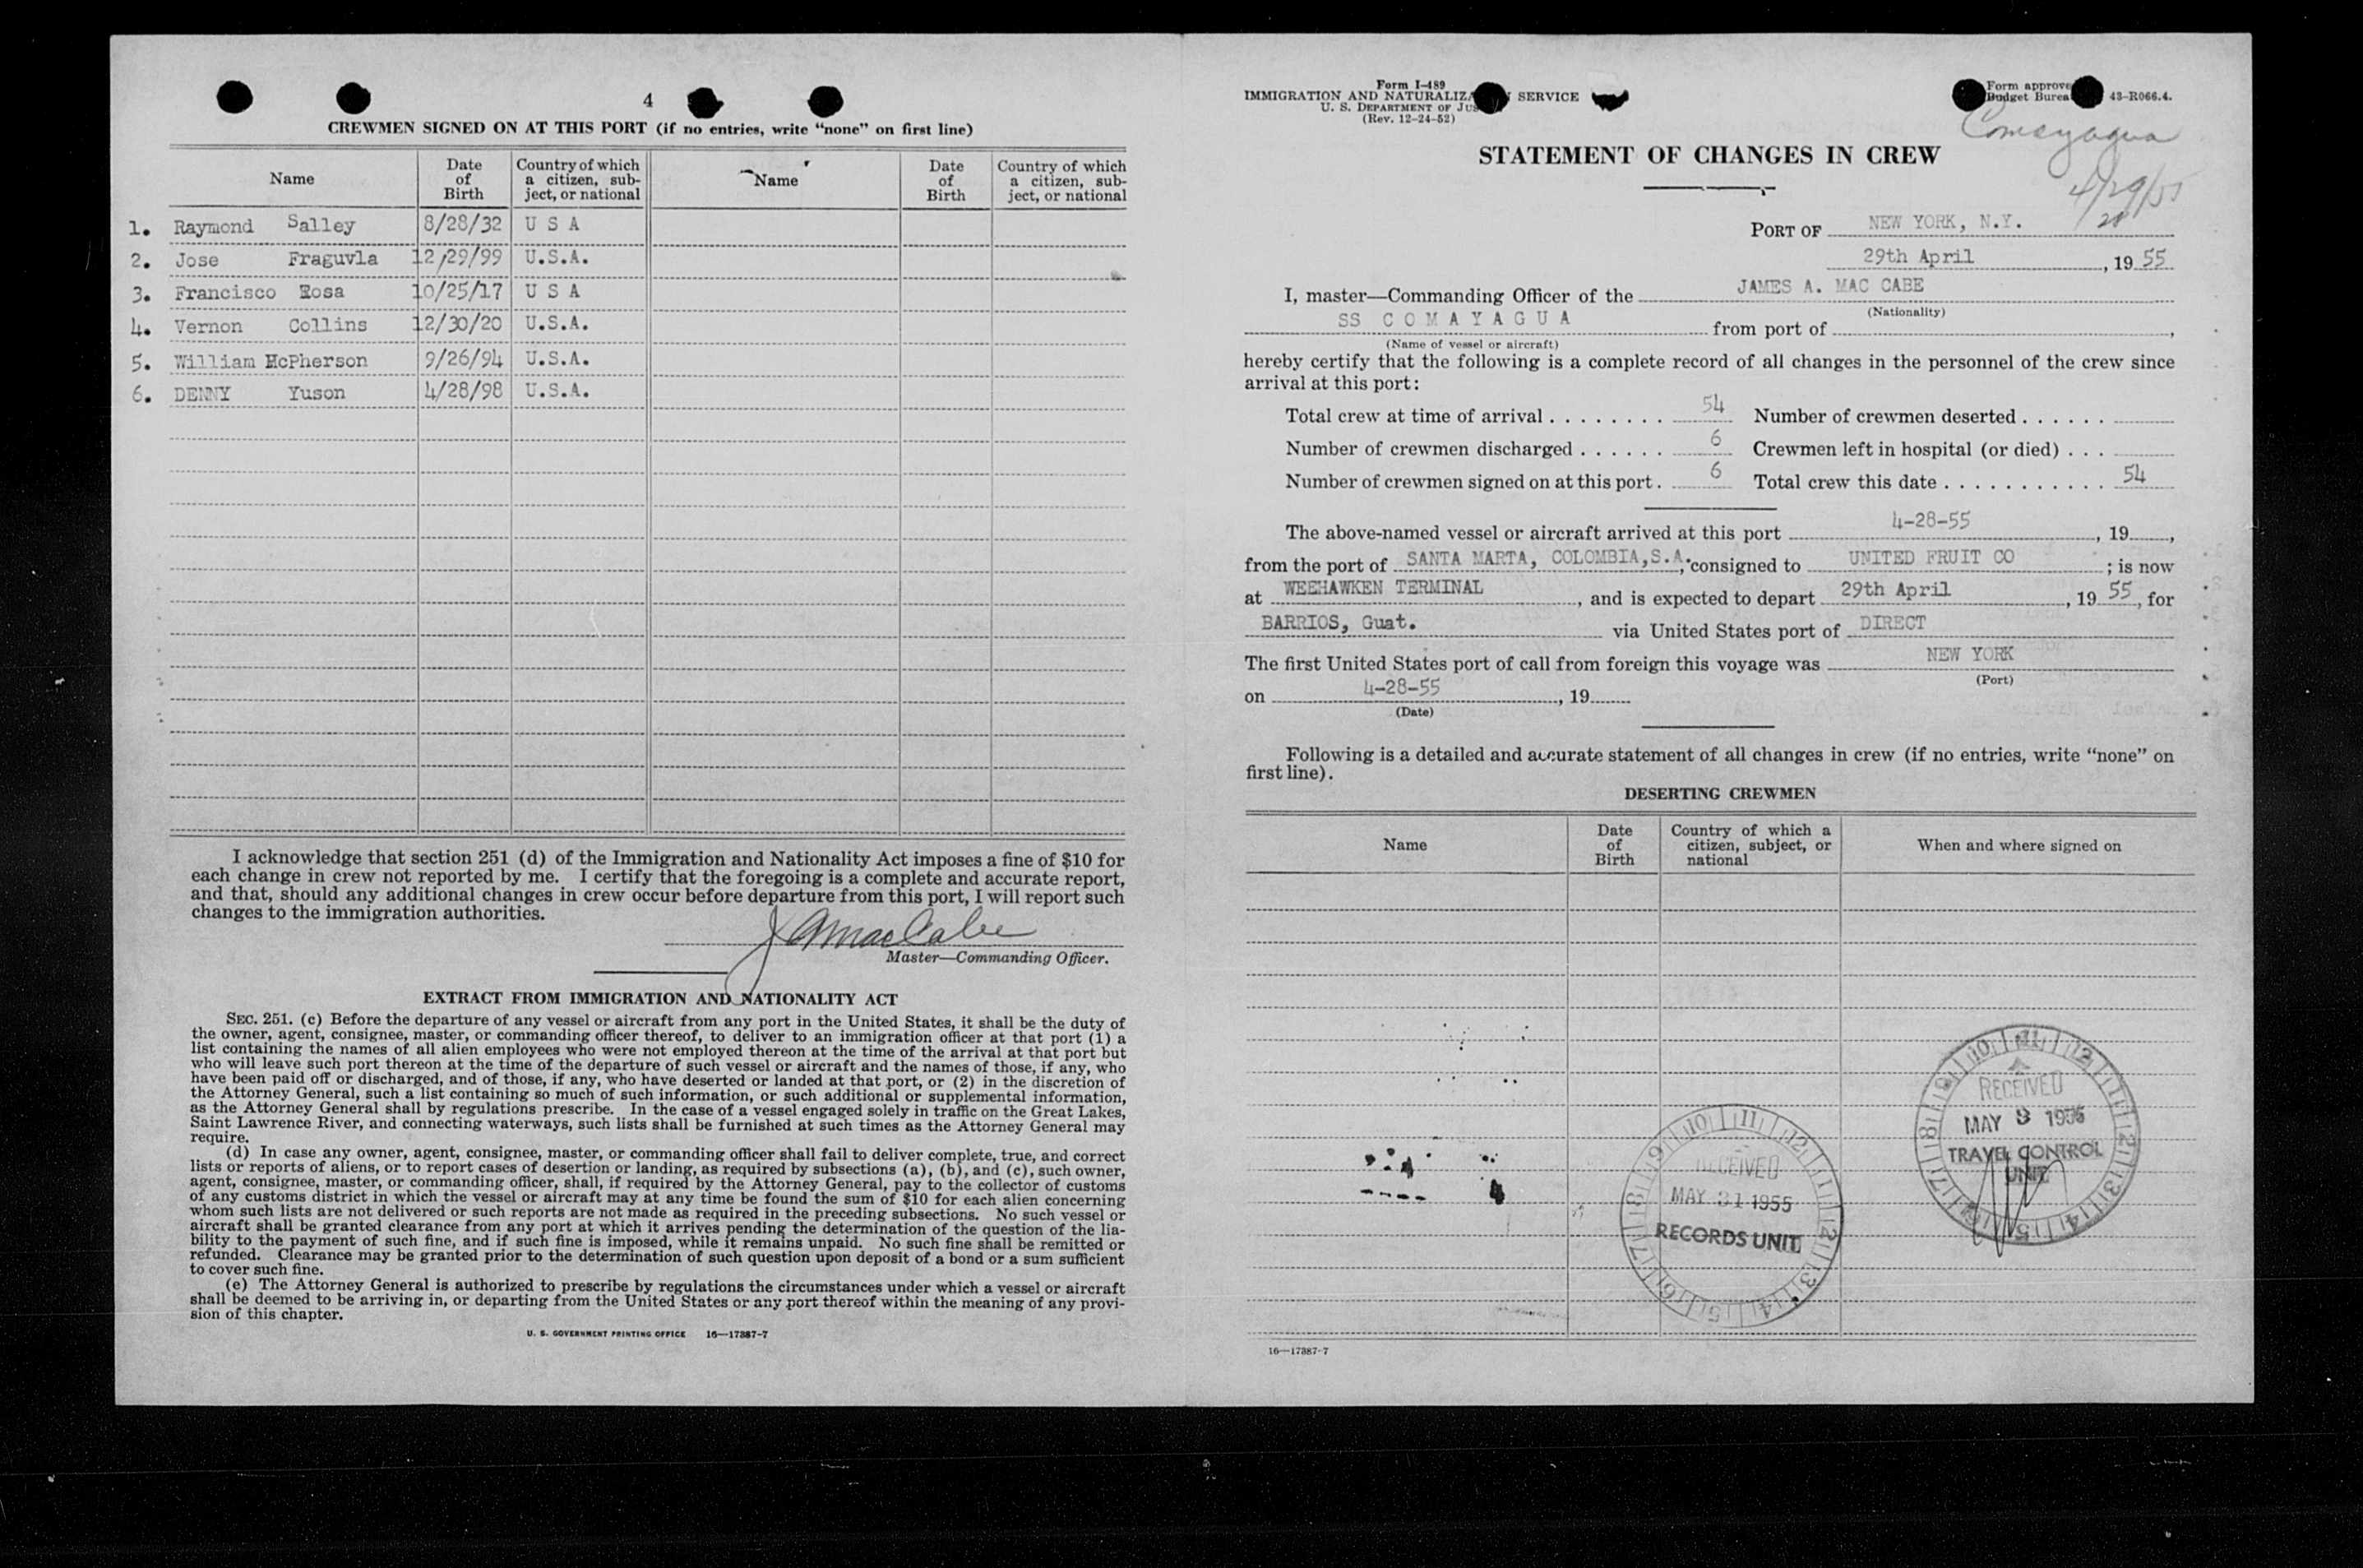 4
CREWMEN SIGNED ON AT THIS PORT (if no entries, write "none" on first line)
Name
Date of Birth
Country of which a citizen, subject, or national
Name
Date of Birth
Country of which a citizen, subject, or national
1. Raymond Salley 8/28/32 U S A
2. Jose Fraguvla 12/29/99 U.S.A.
3. Francisco Rosa 10/25/17 U S A
4. Vernon Collins 12/30/20 U.S.A.
5. William McPherson 9/26/94 U.S.A.
6. DENNY Yuson 4/28/98 U.S.A.
I acknowledge that section 251 (d) of the Immigration and Nationality Act imposes a fine of $10 for
each change in crew not reported by me. I certify that the foregoing is a complete and accurate report,
and that, should any additional changes in crew occur before departure from this port, I will report such
changes to the immigration authorities.
J A MacCabe
Master—Commanding Officer.
EXTRACT FROM IMMIGRATION AND NATIONALITY ACT
SEC. 251. (c) Before the departure of any vessel or aircraft from any port in the United States, it shall be the duty of
the owner, agent, consignee, master, or commanding officer thereof, to deliver to an immigration officer at that port (1) a
list containing the names of all alien employees who were not employed thereon at the time of the arrival at that port but
who will leave such port thereon at the time of the departure of such vessel or aircraft and the names of those, if any, who
have been paid off or discharged, and of those, if any, who have deserted or landed at that port, or (2) in the discretion of
the Attorney General, such a list containing so much of such information, or such additional or supplemental information,
as the Attorney General shall by regulations prescribe. In the case of a vessel engaged solely in traffic on the Great Lakes,
Saint Lawrence River, and connecting waterways, such lists shall be furnished at such times as the Attorney General may
require.
(d) In case any owner, agent, consignee, master, or commanding officer shall fail to deliver complete, true, and correct
lists or reports of aliens, or to report cases of desertion or landing, as required by subsections (a), (b), and (c), such owner,
agent, consignee, master, or commanding officer, shall, if required by the Attorney General, pay to the collector of customs
of any customs district in which the vessel or aircraft may at any time be found the sum of $10 for each alien concerning
whom such lists are not delivered or such reports are not made as required in the preceding subsections. No such vessel or
aircraft shall be granted clearance from any port at which it arrives pending the determination of the question of the lia-
bility to the payment of such fine, and if such fine is imposed, while it remains unpaid. No such fine shall be remitted or
refunded. Clearance may be granted prior to the determination of such question upon deposit of a bond or a sum sufficient
to cover such fine.
(e) The Attorney General is authorized to prescribe by regulations the circumstances under which a vessel or aircraft
shall be deemed to be arriving in, or departing from the United States or any port thereof within the meaning of any provi-
sion of this chapter.
U. S. GOVERNMENT PRINTING OFFICE 16—17387-7
Form I-489
IMMIGRATION AND NATURALIZA SERVICE
U. S. DEPARTMENT OF JUS
(Rev. 12-24-52)
Form approve
Budget Burea 43-R066.4.
Comayagua
4/29/55
STATEMENT OF CHANGES IN CREW
PORT OF NEW YORK, N.Y.
29th April, 19 55
I, master—Commanding Officer of the JAMES A. MAC CABE
(Nationality)
SS C O M A Y A G U A from port of ,
(Name of vessel or aircraft)
hereby certify that the following is a complete record of all changes in the personnel of the crew since
arrival at this port:
Total crew at time of arrival . . . . . . . . 54 Number of crewmen deserted . . . . . .
Number of crewmen discharged . . . . . . 6 Crewmen left in hospital (or died) . . .
Number of crewmen signed on at this port . 6 Total crew this date . . . . . . . . . . . 54
The above-named vessel or aircraft arrived at this port 4-28-55, 19 ,
from the port of SANTA MARTA, COLOMBIA,S.A.; consigned to UNITED FRUIT CO ; is now
at WEEHAWKEN TERMINAL, and is expected to depart 29th April, 19 55, for
BARRIOS, Guat. via United States port of DIRECT
The first United States port of call from foreign this voyage was NEW YORK
(Port)
on 4-28-55, 19
(Date)
Following is a detailed and accurate statement of all changes in crew (if no entries, write "none" on
first line).
DESERTING CREWMEN
Name
Date of Birth
Country of which a citizen, subject, or national
When and where signed on
RECEIVED
MAY 3
TRAVEL CONTROL
UNIT
RECEIVED
MAY 31 1955
RECORDS UNIT
16—17387-7